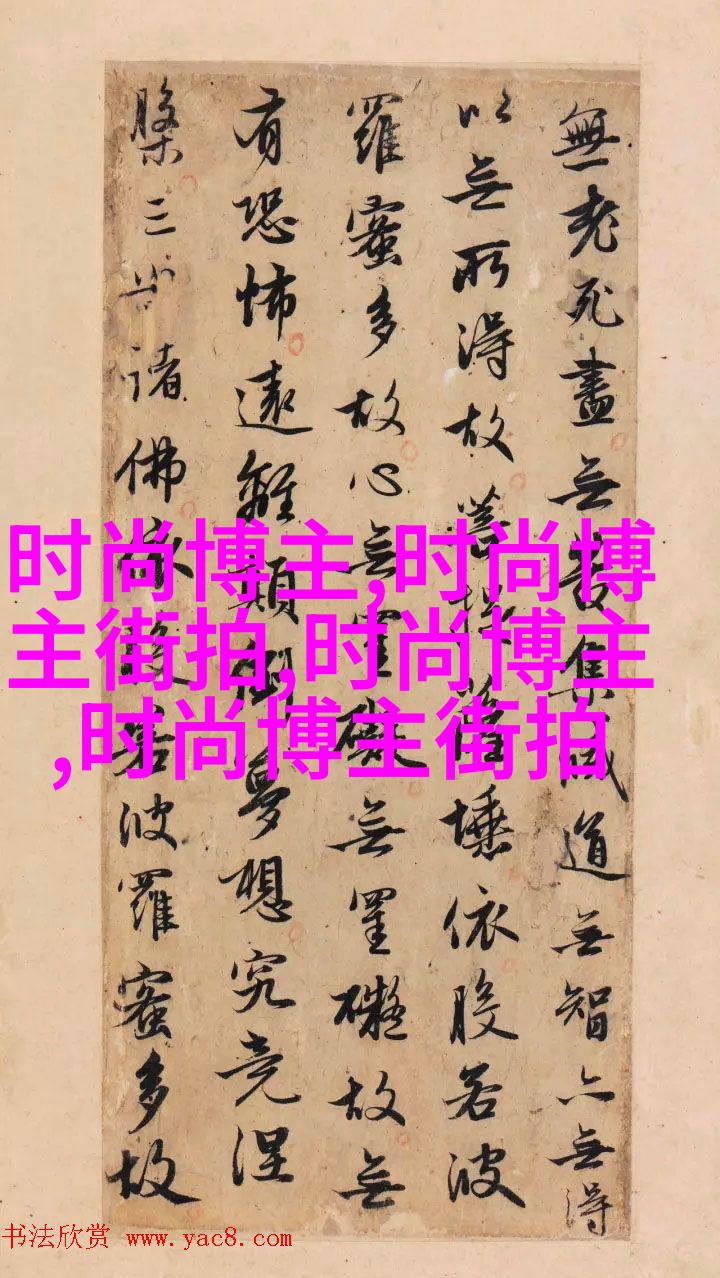 無老死盡无苦集滅道无智亦无得
以无所得故菩提薩埵依般若波
羅蜜多故心无罣礙无罣礙故无
有恐怖遠離顛倒夢想究竟涅
槃三世諸佛依般若波羅蜜多故
时尚博主,时尚博
主街拍,时尚博主
,时尚博主街拍
书法欣赏 www.yac8.com